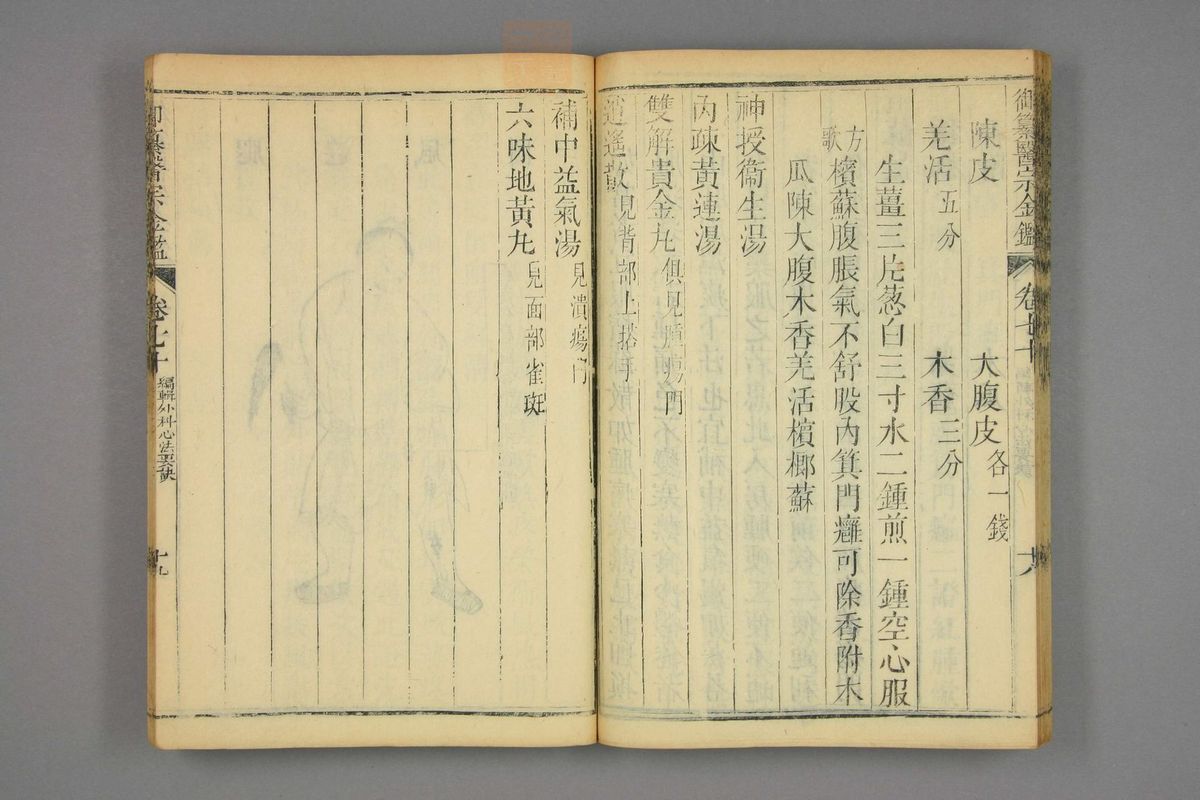 御纂醫宗金鑑 卷七十 十八
陳皮 大腹皮各一錢
羌活五分 木香三分
生薑三片葱白三寸水二鍾煎一鍾空心服
方歌 檳蘇腹脹氣不舒股內箕門癰可除香附木
瓜陳大腹木香羌活檳榔蘇
神授衞生湯
內疎黃連湯
雙解貴金丸俱見腫瘍門
逍遙散見背部上搭手
補中益氣湯見潰瘍門
六味地黃丸見面部雀斑
御纂醫宗金鑑 卷七十 編輯外科心法要訣 十九